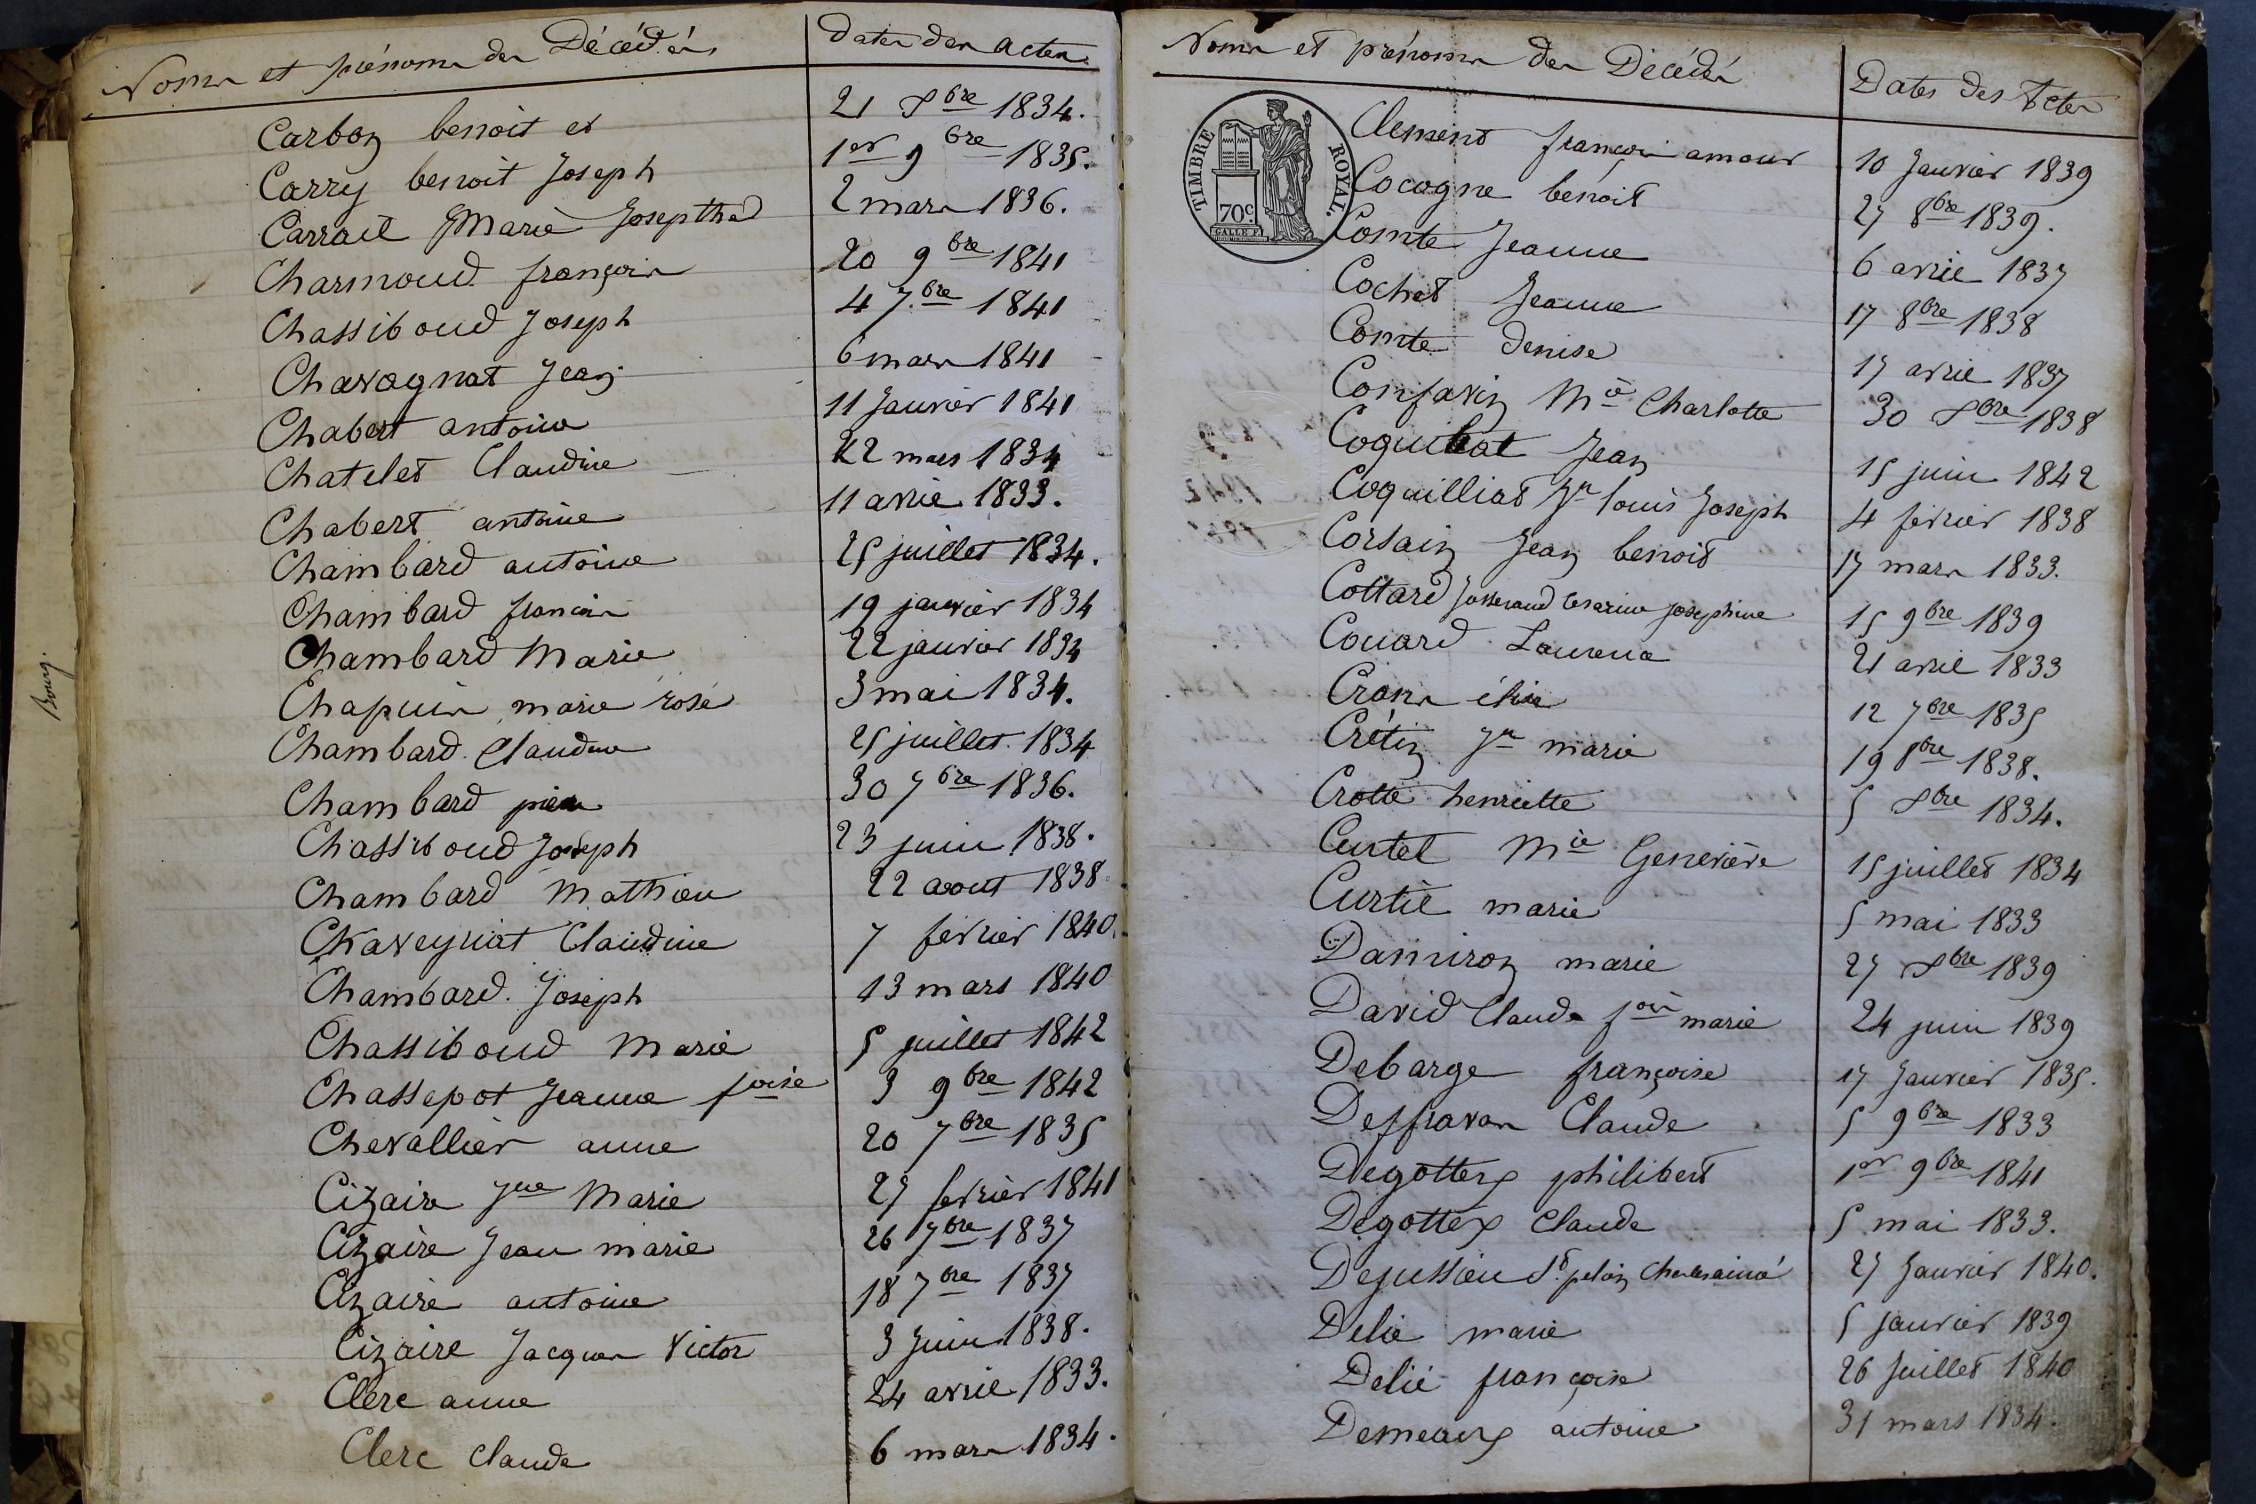 Noms et prénoms des Décédés Dates des actes
Carbon benoit et 21 8bre 1834.
Carry benoit Joseph 1er 9bre 1835.
Carrail Marie Josepthe 2 mars 1836.
Charmoud françois 20 9bre 1841
Chassiboud Joseph 4 7bre 1841
Chavagnat Jean 6 mars 1841
Chabert antoine 11 Janvier 1841
Chatelet Claudine 22 mars 1834
Chabert antoine 11 avril 1833.
Chambard antoine 25 juillet 1834.
Chambard francois 19 janvier 1834
Chambard Marie 22 janvier 1834
Chapuis marie rose 3 mai 1834.
Chambard Claudine 25 juillet 1834
Chambard pierre 30 7bre 1836.
Chassiboud Joseph 23 juin 1838.
Chambard Mathieu 22 aout 1838
Chaveyriat Claudine 7 fevrier 1840.
Chambard. Joseph 13 mars 1840
Chassiboud Marie 5 juillet 1842
Chassepot Jeanne foise 3 9bre 1842
Chevallier anne 20 7bre 1835
Cizaire Jne Marie 27 fevrier 1841
Cizaire Jean marie 26 7bre 1837
Cizaire antoine 18 7bre 1837
Cizaire Jacques Victor 3 Juin 1838.
Clerc anne 24 avril 1833.
Clerc Claude 6 mars 1834.
Bourg.
Noms et prénoms des Décédés Dates des Actes
TIMBRE ROYAL.
70c.
Clement françois amour 10 Janvier 1839
Cocogne benoit 27 8bre 1839.
Comte Jeanne 6 avril 1837
Cochet Jeanne 17 8bre 1838
Comte denise 17 avril 1837
Confavin Mie Charlotte 30 8bre 1838
Coquillat Jean 15 juin 1842
Coquilliat Jn louis Joseph 4 fevrier 1838
Corsain Jean benoit 17 mars 1833.
Cottard Josserand Cesarine Josephine 15 9bre 1839
Couard Laurence 21 avril 1833
Crans élise 12 7bre 1835
Crétin Jn marie 19 8bre 1838.
Crotte henriette 5 8bre 1834.
Curtet Mie Geneviève 15 juillet 1834
Curtil marie 5 mai 1833
Damiron marie 27 8bre 1839
David Claude fois marie 24 juin 1839
Debarge françoise 17 Janvier 1835.
Deffravas Claude 5 9bre 1833
Degottex philibert 1er 9bre 1841
Degottex Claude 5 mai 1833.
Dejussieu 27 Janvier 1840.
Delie marie 5 janvier 1839
Delié françoise 26 Juillet 1840
Demeaux antoine 31 mars 1834.